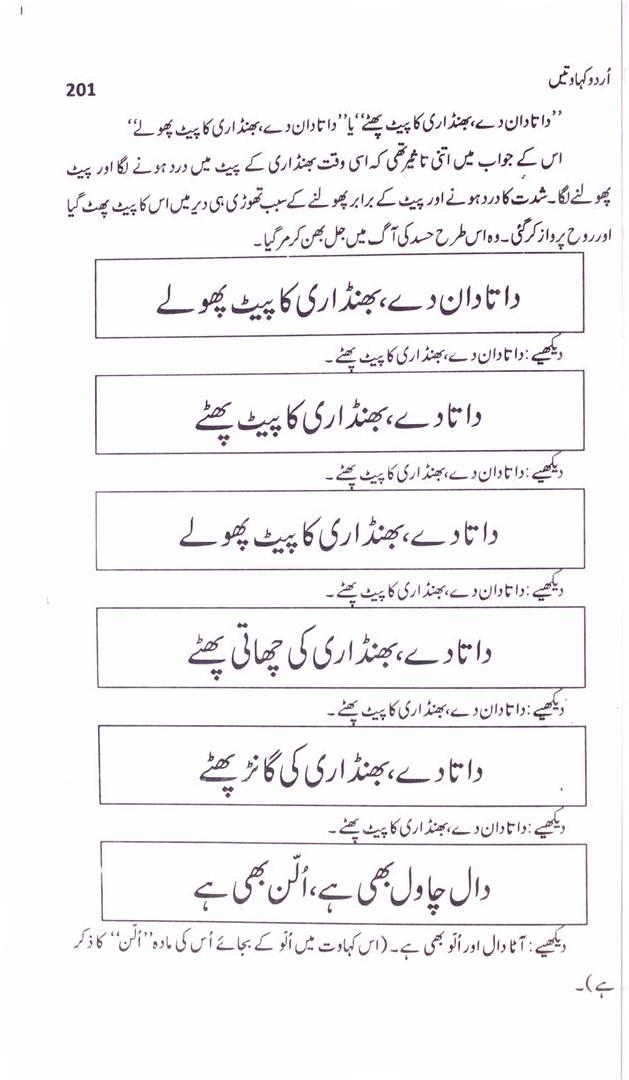 اُردو کہاوتیں
201
”داتا دان دے، بھنڈاری کا پیٹ پھٹے“ یا ”داتا دان دے، بھنڈاری کا پیٹ پھولے“
اس کے جواب میں اتنی تاثیر تھی کہ اسی وقت بھنڈاری کے پیٹ میں درد ہونے لگا اور پیٹ
پھولنے لگا۔ شدت کا درد ہونے اور پیٹ کے برابر پھولنے کے سبب تھوڑی ہی دیر میں اس کا پیٹ پھٹ گیا
اور روح پرواز کر گئی۔ وہ اس طرح حسد کی آگ میں جل بھن کر مر گیا۔
داتا دان دے، بھنڈاری کا پیٹ پھولے
دیکھیے: داتا دان دے، بھنڈاری کا پیٹ پھٹے۔
داتا دے، بھنڈاری کا پیٹ پھٹے
دیکھیے: داتا دان دے، بھنڈاری کا پیٹ پھٹے۔
داتا دے، بھنڈاری کا پیٹ پھولے
دیکھیے: داتا دان دے، بھنڈاری کا پیٹ پھٹے۔
داتا دے، بھنڈاری کی چھاتی پھٹے
دیکھیے: داتا دان دے، بھنڈاری کا پیٹ پھٹے۔
داتا دے، بھنڈاری کی گانڑ پھٹے
دیکھیے: داتا دان دے، بھنڈاری کا پیٹ پھٹے۔
دال چاول بھی ہے، اُلّن بھی ہے
دیکھیے: آٹا دال اور اُلّو بھی ہے۔ (اس کہاوت میں اُلّو کے بجائے اُس کی مادہ ”اُلّن“ کا ذکر
ہے)۔